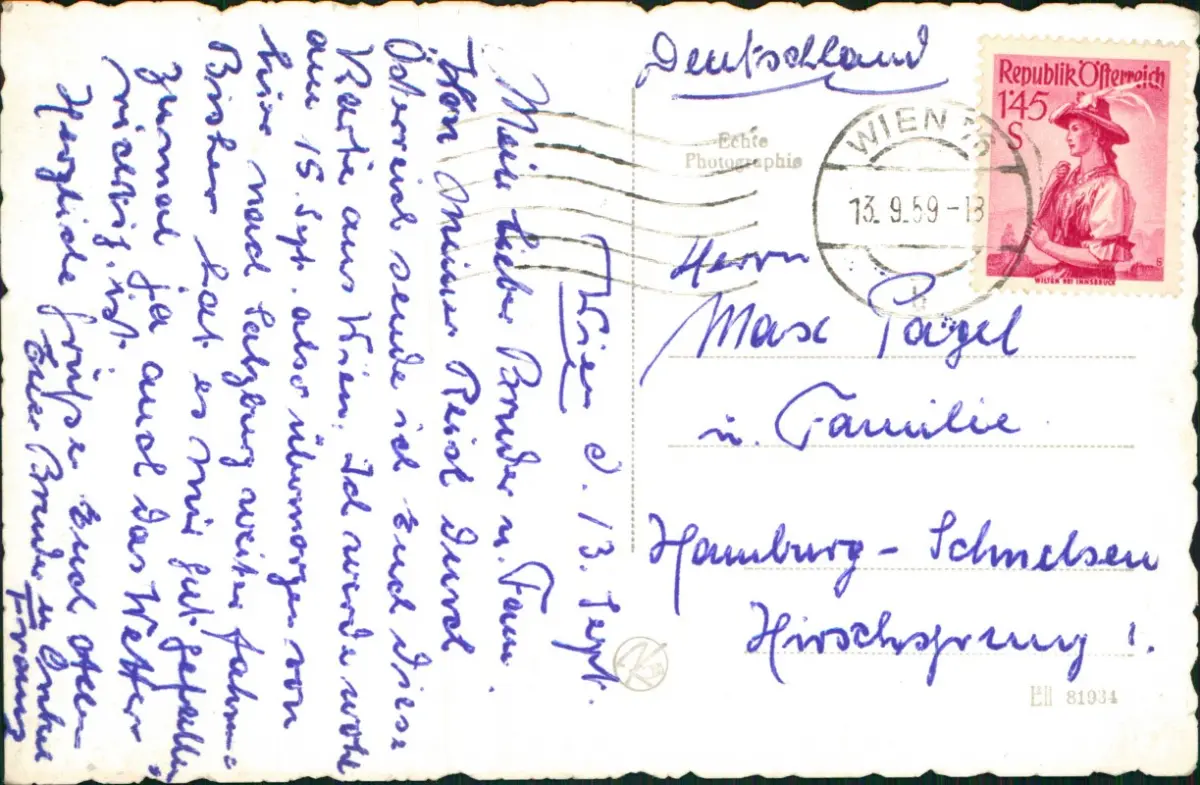 Wien d. 13. Sept.
Mein lieber Bruder u. Fam.
Von meiner Reise durch
Österreich sende ich Euch diese
Karte aus Wien. Ich werde wohl
am 15. Sept. also übermorgen von
hier nach Salzburg weiter fahren
Bisher hat es mir gut gefallen,
zumal ja auch das Wetter
richtig ist.
Herzliche Grüße Euch allen
Euer Bruder u. Onkel
Franz
Deutschland
Echte
Photographie
WIEN
13. 9.59-18
b
Republik Österreich
1'45
S
WILTEN BEI INNSBRUCK
Herrn
Max Pagel
u. Familie
Hamburg - Schnelsen
Hirschsprung 1.
81934